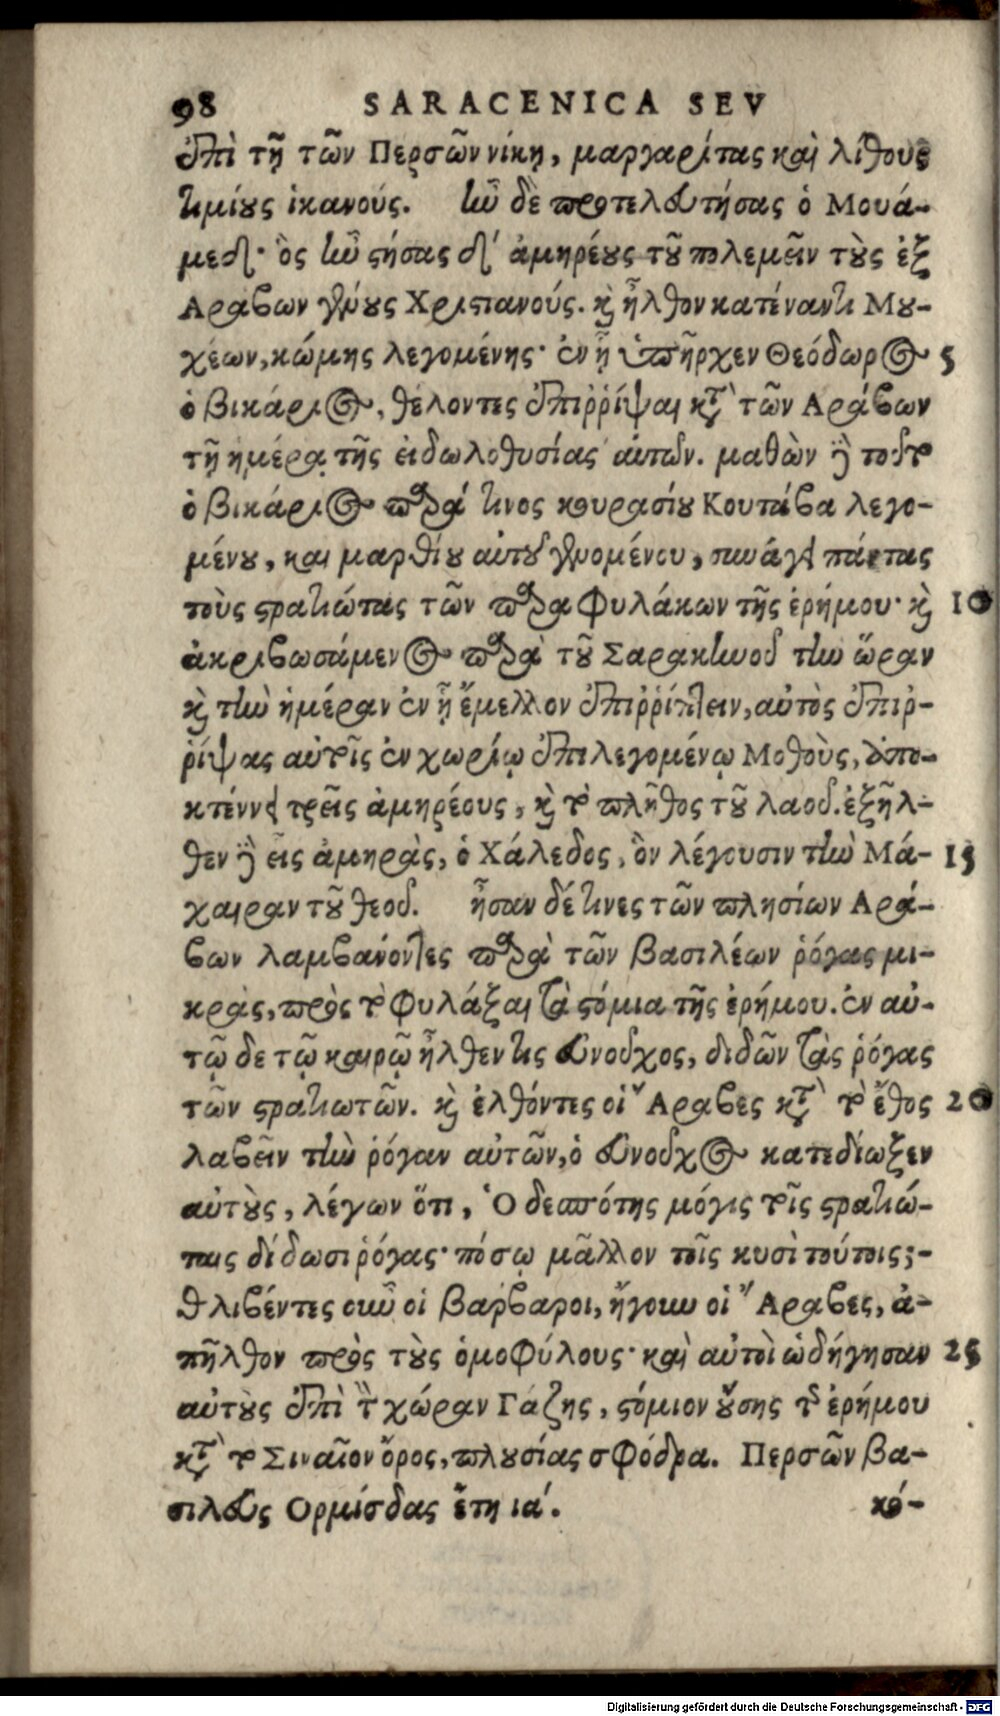 98 SARACENICA SEV
ἐπὶ τῇ τῶν Περσῶν νίκῃ, μαργαρίτας καὶ λίθους
τιμίους ἱκανούς. ἦν δὲ προτελευτήσας ὁ Μουά-
μεδ· ὃς ἦν στήσας δ΄ ἀμηρέους τοῦ πολεμεῖν τοὺς ἐξ
Αράβων γένους Χριστιανούς. καὶ ἦλθον κατέναντι Μου-
χέων, κώμης λεγομένης· ἐν ᾗ ὑπῆρχεν Θεόδωρος 5
ὁ βικάριος, θέλοντες ἐπιρρίψαι κατὰ τῶν Αράβων
τῇ ἡμέρᾳ τῆς εἰδωλοθυσίας αὐτῶν. μαθὼν δὲ τοῦτο
ὁ βικάριος παρά τινος κουρασίου Κουτάβα λεγο-
μένου, καὶ μαρθίου αὐτοῦ γενομένου, συνάγει πάντας
τοὺς στρατιώτας τῶν παραφυλάκων τῆς ἐρήμου· καὶ 10
ἀκριβωσάμενος παρὰ τοῦ Σαρακηνοῦ τὴν ὥραν
καὶ τὴν ἡμέραν ἐν ᾗ ἔμελλον ἐπιρρίπτειν, αὐτὸς ἐπιρ-
ρίψας αὐτοῖς ἐν χωρίῳ ἐπιλεγομένῳ Μοθοὺς, ἀπο-
κτέννει τρεῖς ἀμηρέους, καὶ τὸ πλῆθος τοῦ λαοῦ. ἐξῆλ-
θεν δὲ εἷς ἀμηρὰς, ὁ Χάλεδος, ὃν λέγουσιν τὴν Μά- 15
χαιραν τοῦ θεοῦ. ἦσαν δέ τινες τῶν πλησίων Αρά-
βων λαμβάνοντες παρὰ τῶν βασιλέων ῥόγας μι-
κρὰς, πρὸς τὸ φυλάξαι τὰ στόμια τῆς ἐρήμου. ἐν αὐ-
τῷ δε τῷ καιρῷ ἦλθεν τις εὐνοῦχος, διδῶν τὰς ῥόγας
τῶν στρατιωτῶν. καὶ ἐλθόντες οἱ Ἄραβες κατὰ τὸ ἔθος 20
λαβεῖν τὴν ῥόγαν αὐτῶν, ὁ εὐνοῦχος κατεδίωξεν
αὐτοὺς, λέγων ὅτι, Ὁ δεσπότης μόγις τοῖς στρατιώ-
ταις δίδωσι ῥόγας· πόσῳ μᾶλλον τοῖς κυσὶ τούτοις;-
θλιβέντες οὖν οἱ βάρβαροι, ἤγουν οἱ Ἄραβες, ἀ-
πῆλθον πρὸς τοὺς ὁμοφύλους· καὶ αὐτοὶ ὡδήγησαν 25
αὐτοὺς ἐπὶ τὴν χώραν Γάζης, στόμιον οὔσης τῆς ἐρήμου
κατὰ τὸ Σιναῖον ὄρος, πλουσίας σφόδρα. Περσῶν βα-
σιλεὺς Ορμίσδας ἔτη ια΄. κό-
Digitalisierung gefördert durch die Deutsche Forschungsgemeinschaft - DFG